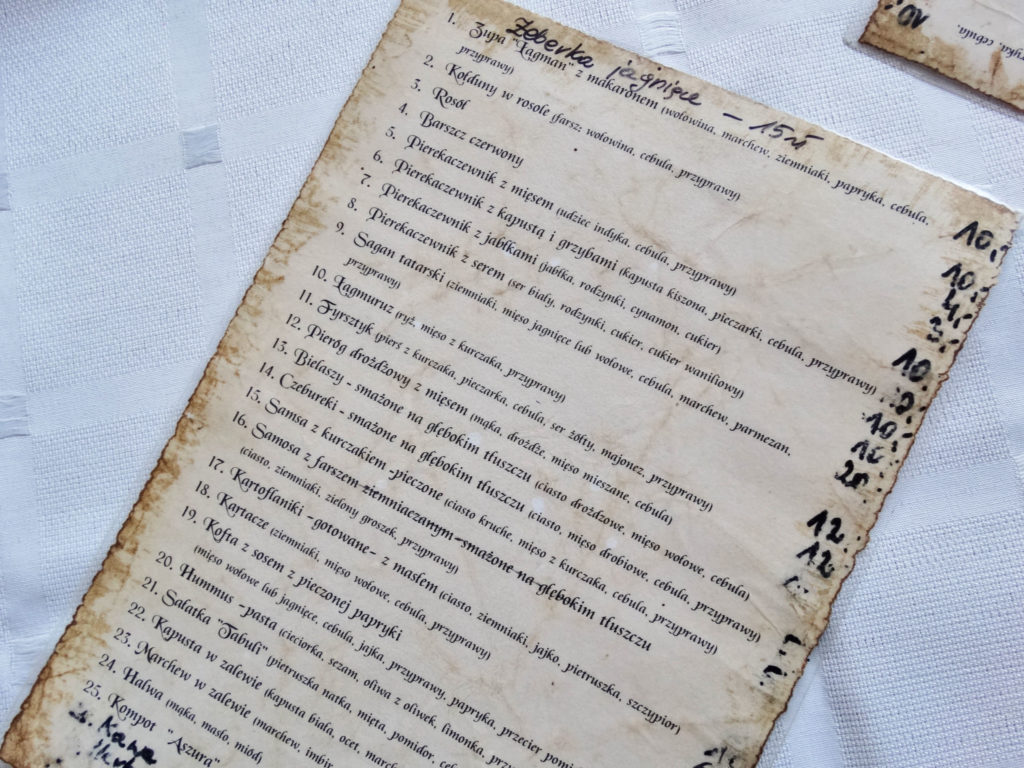 żeberka jagnięce - 15zł
1. Zupa "Łagman" z makaronem (wołowina, marchew, ziemniaki, papryka, cebula,
przyprawy) 10,-
2. Kołduny w rosole (farsz: wołowina, cebula, przyprawy) 10,-
3. Rosół
4. Barszcz czerwony 3,-
5. Pierekaczewnik z mięsem (udziec indyka, cebula, przyprawy) 10.
6. Pierekaczewnik z kapustą i grzybami (kapusta kiszona, pieczarki, cebula, przyprawy)
7. Pierekaczewnik z jabłkami (jabłka, rodzynki, cynamon, cukier) 10,-
8. Pierekaczewnik z serem (ser biały, rodzynki, cukier, cukier waniliowy)
9. Sagan tatarski (ziemniaki, mięso jagnięce lub wołowe, cebula, marchew, parmezan,
przyprawy)
10. Łagmuruz (ryż, mięso z kurczaka, przyprawy) 12.
11. Fyrsztyk (pierś z kurczaka, pieczarka, cebula, ser żółty, majonez, przyprawy) 12
12. Pieróg drożdżowy z mięsem (mąka, drożdże, mięso mieszane, cebula)
13. Bielaszy - smażone na głębokim tłuszczu (ciasto drożdżowe, mięso wołowe, cebula)
14. Czebureki - smażone na głębokim tłuszczu (ciasto, mięso drobiowe, cebula, przyprawy)
15. Samsa z kurczakiem -pieczone (ciasto kruche, mięso z kurczaka, cebula, przyprawy)
16. Samosa z farszem ziemniaczanym-smażone na głębokim tłuszczu
(ciasto, ziemniaki, zielony groszek, przyprawy)
17. Kartoflaniki -gotowane- z masłem (ciasto, ziemniaki, jajko, pietruszka, szczypior)
18. Kartacze (ziemniaki, mięso wołowe, cebula, przyprawy)
19. Kofta z sosem z pieczonej papryki
(mięso wołowe lub jagnięce, cebula, jajka, przyprawy, papryka, przecier
20. Hummus -pasta (cieciorka, sezam, oliwa z oliwek, limonka,
21. Sałatka "Tabuli" (pietruszka natka, mięta, pomidor,
22. Kapusta w zalewie (kapusta biała, ocet,
23. Marchew w zalewie (marchew, imbir,
24. Halwa (mąka, masło, miód)
25. Kompot "Aszura"
26. Kawa
cebula,